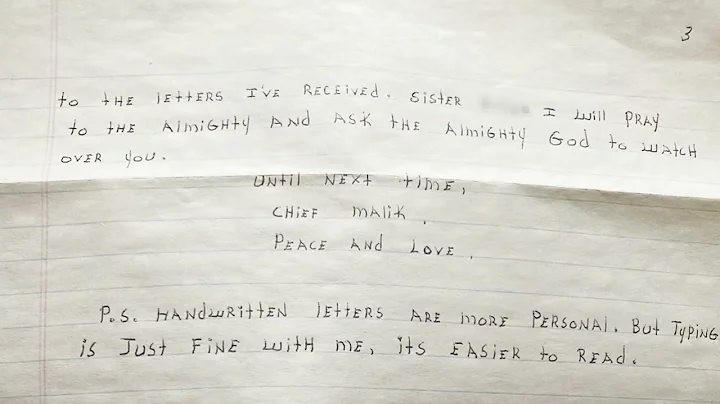 3
to tHE lEttERS I'VE RECEiVEd. SiStER I will PRAY
to tHE AlmiGHty AND ASK tHE AlmiGHty God to WAtCH
OVER YoU.
UNtil NEXt timE,
CHiEF mAliK.
PEACE AND LOVE.
P.S. HANDWRittEN lEttERS ARE moRE PERSONAl. BUt TYPiNG
iS JUSt FiNE witH mE, itS EASiER to READ.